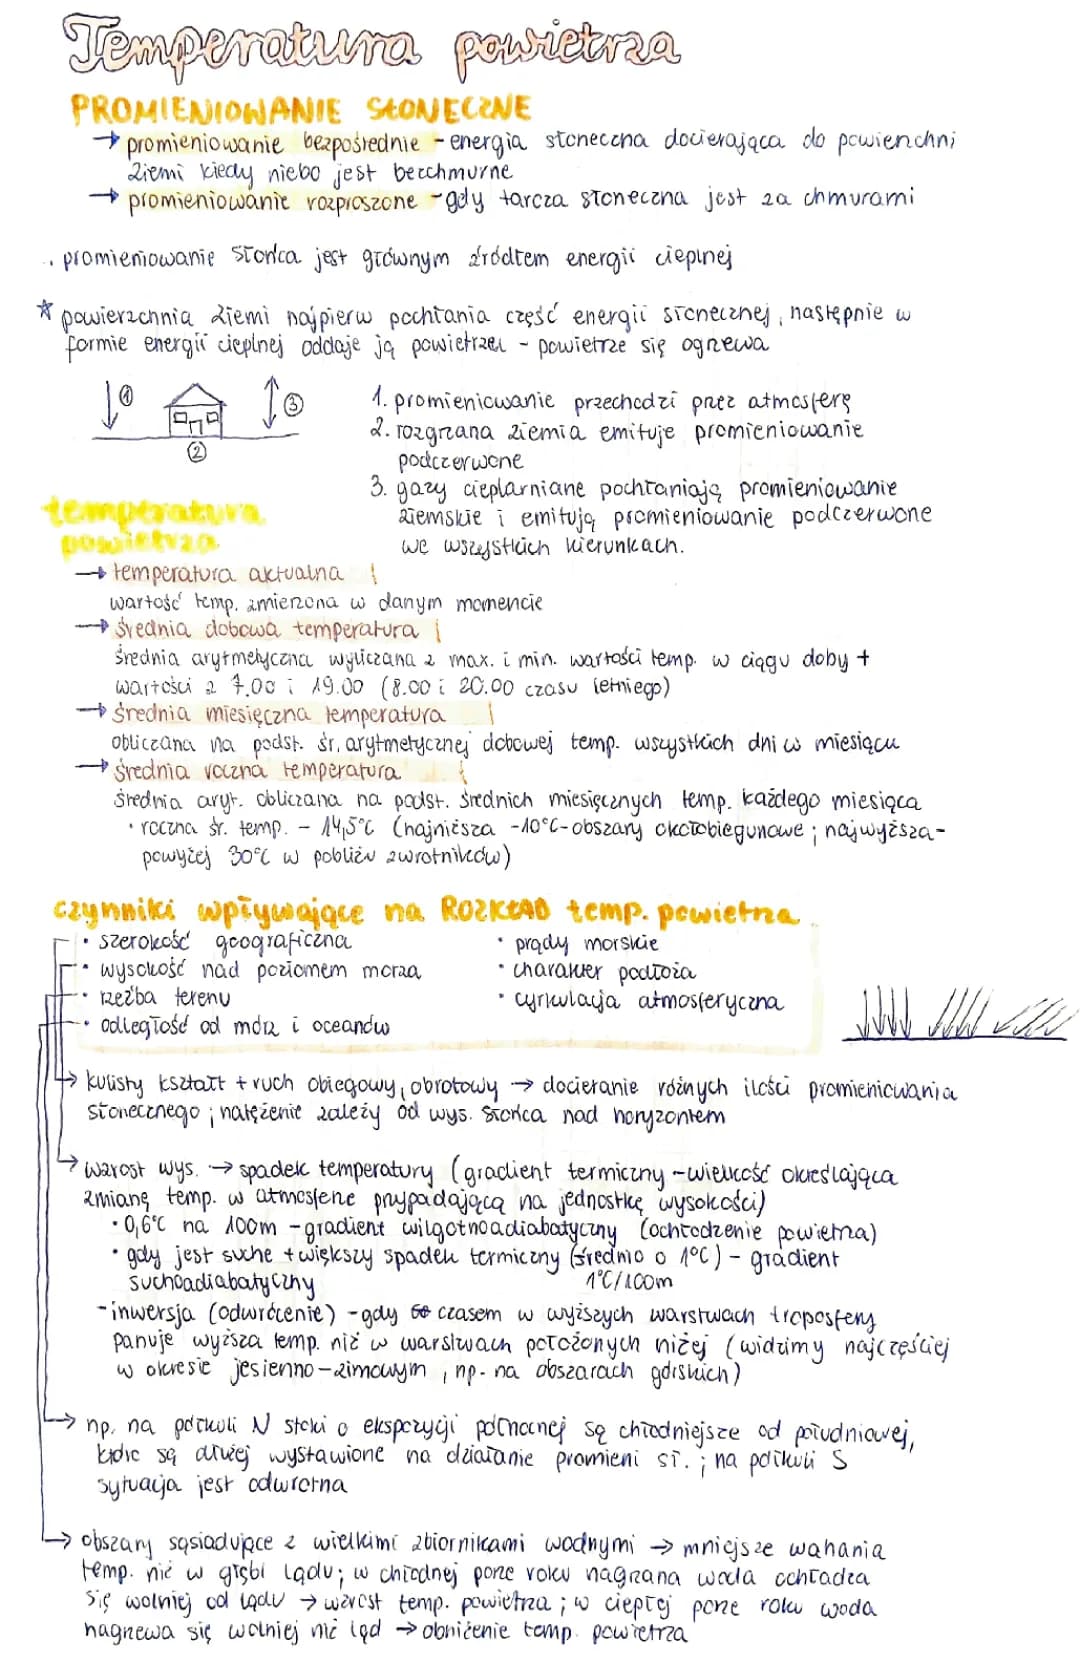 Temperatura powietrza
PROMIENIOWANIE SŁONECZNE
→ promieniowanie bezpośrednie - energia słoneczna docierająca do powierzchni
Ziemi kiedy niebo jest bezchmurne
→ promieniowanie rozproszone - gdy tarcza słoneczna jest za chmurami
. promieniowanie Słońca jest głównym źródłem energii cieplnej
* powierzchnia Ziemi najpierw pochłania część energii słonecznej, następnie w
formie energii cieplnej oddaje ją powietrzu - powietrze się ogrzewa
① ③
②
1. promieniowanie przechodzi przez atmosferę
2. rozgrzana ziemia emituje promieniowanie
podczerwone
3. gazy cieplarniane pochłaniają promieniowanie
ziemskie i emitują promieniowanie podczerwone
we wszystkich kierunkach.
temperatura
powietrza
→ temperatura aktualna
wartość temp. zmierzona w danym momencie
→ średnia dobowa temperatura
średnia arytmetyczna wyliczana z max. i min. wartości temp. w ciągu doby +
wartości z 7.00 i 19.00 (8.00 i 20.00 czasu letniego)
→ średnia miesięczna temperatura
obliczana na podst. śr. arytmetycznej dobowej temp. wszystkich dni w miesiącu
→ średnia roczna temperatura
średnia aryt. obliczana na podst. średnich miesięcznych temp. każdego miesiąca
• roczna śr. temp. - 14,5°C (najniższa -10°C - obszary okołobiegunowe ; najwyższa -
powyżej 30°C w pobliżu zwrotników)
czynniki wpływające na ROZKŁAD temp. powietrza
• szerokość geograficzna
• wysokość nad poziomem morza
• rzeźba terenu
• odległość od mórz i oceanów
• prądy morskie
• charakter podłoża
• cyrkulacja atmosferyczna
→ kulisty kształt + ruch obiegowy, obrotowy → docieranie różnych ilości promieniowania
słonecznego ; natężenie zależy od wys. Słońca nad horyzontem
→ wzrost wys. → spadek temperatury (gradient termiczny - wielkość określająca
zmianę temp. w atmosferze przypadającą na jednostkę wysokości)
• 0,6°C na 100m - gradient wilgotnoadiabatyczny (ochłodzenie powietrza)
• gdy jest suche + większy spadek termiczny (średnio o 1°C) - gradient
suchoadiabatyczny 1°C/100m
- inwersja (odwrócenie) - gdy czasem w wyższych warstwach troposfery
panuje wyższa temp. niż w warstwach położonych niżej (widzimy najczęściej
w okresie jesienno - zimowym, np. na obszarach górskich)
→ np. na półkuli N stoki o ekspozycji północnej są chłodniejsze od południowej,
które są dłużej wystawione na działanie promieni sł. ; na półkuli S
sytuacja jest odwrotna
→ obszary sąsiadujące z wielkimi zbiornikami wodnymi → mniejsze wahania
temp. niż w głębi lądu; w chłodnej porze roku nagrzana woda ochładza
się wolniej od lądu → wzrost temp. powietrza ; w ciepłej porze roku woda
nagrzewa się wolniej niż ląd → obniżenie temp. powietrza